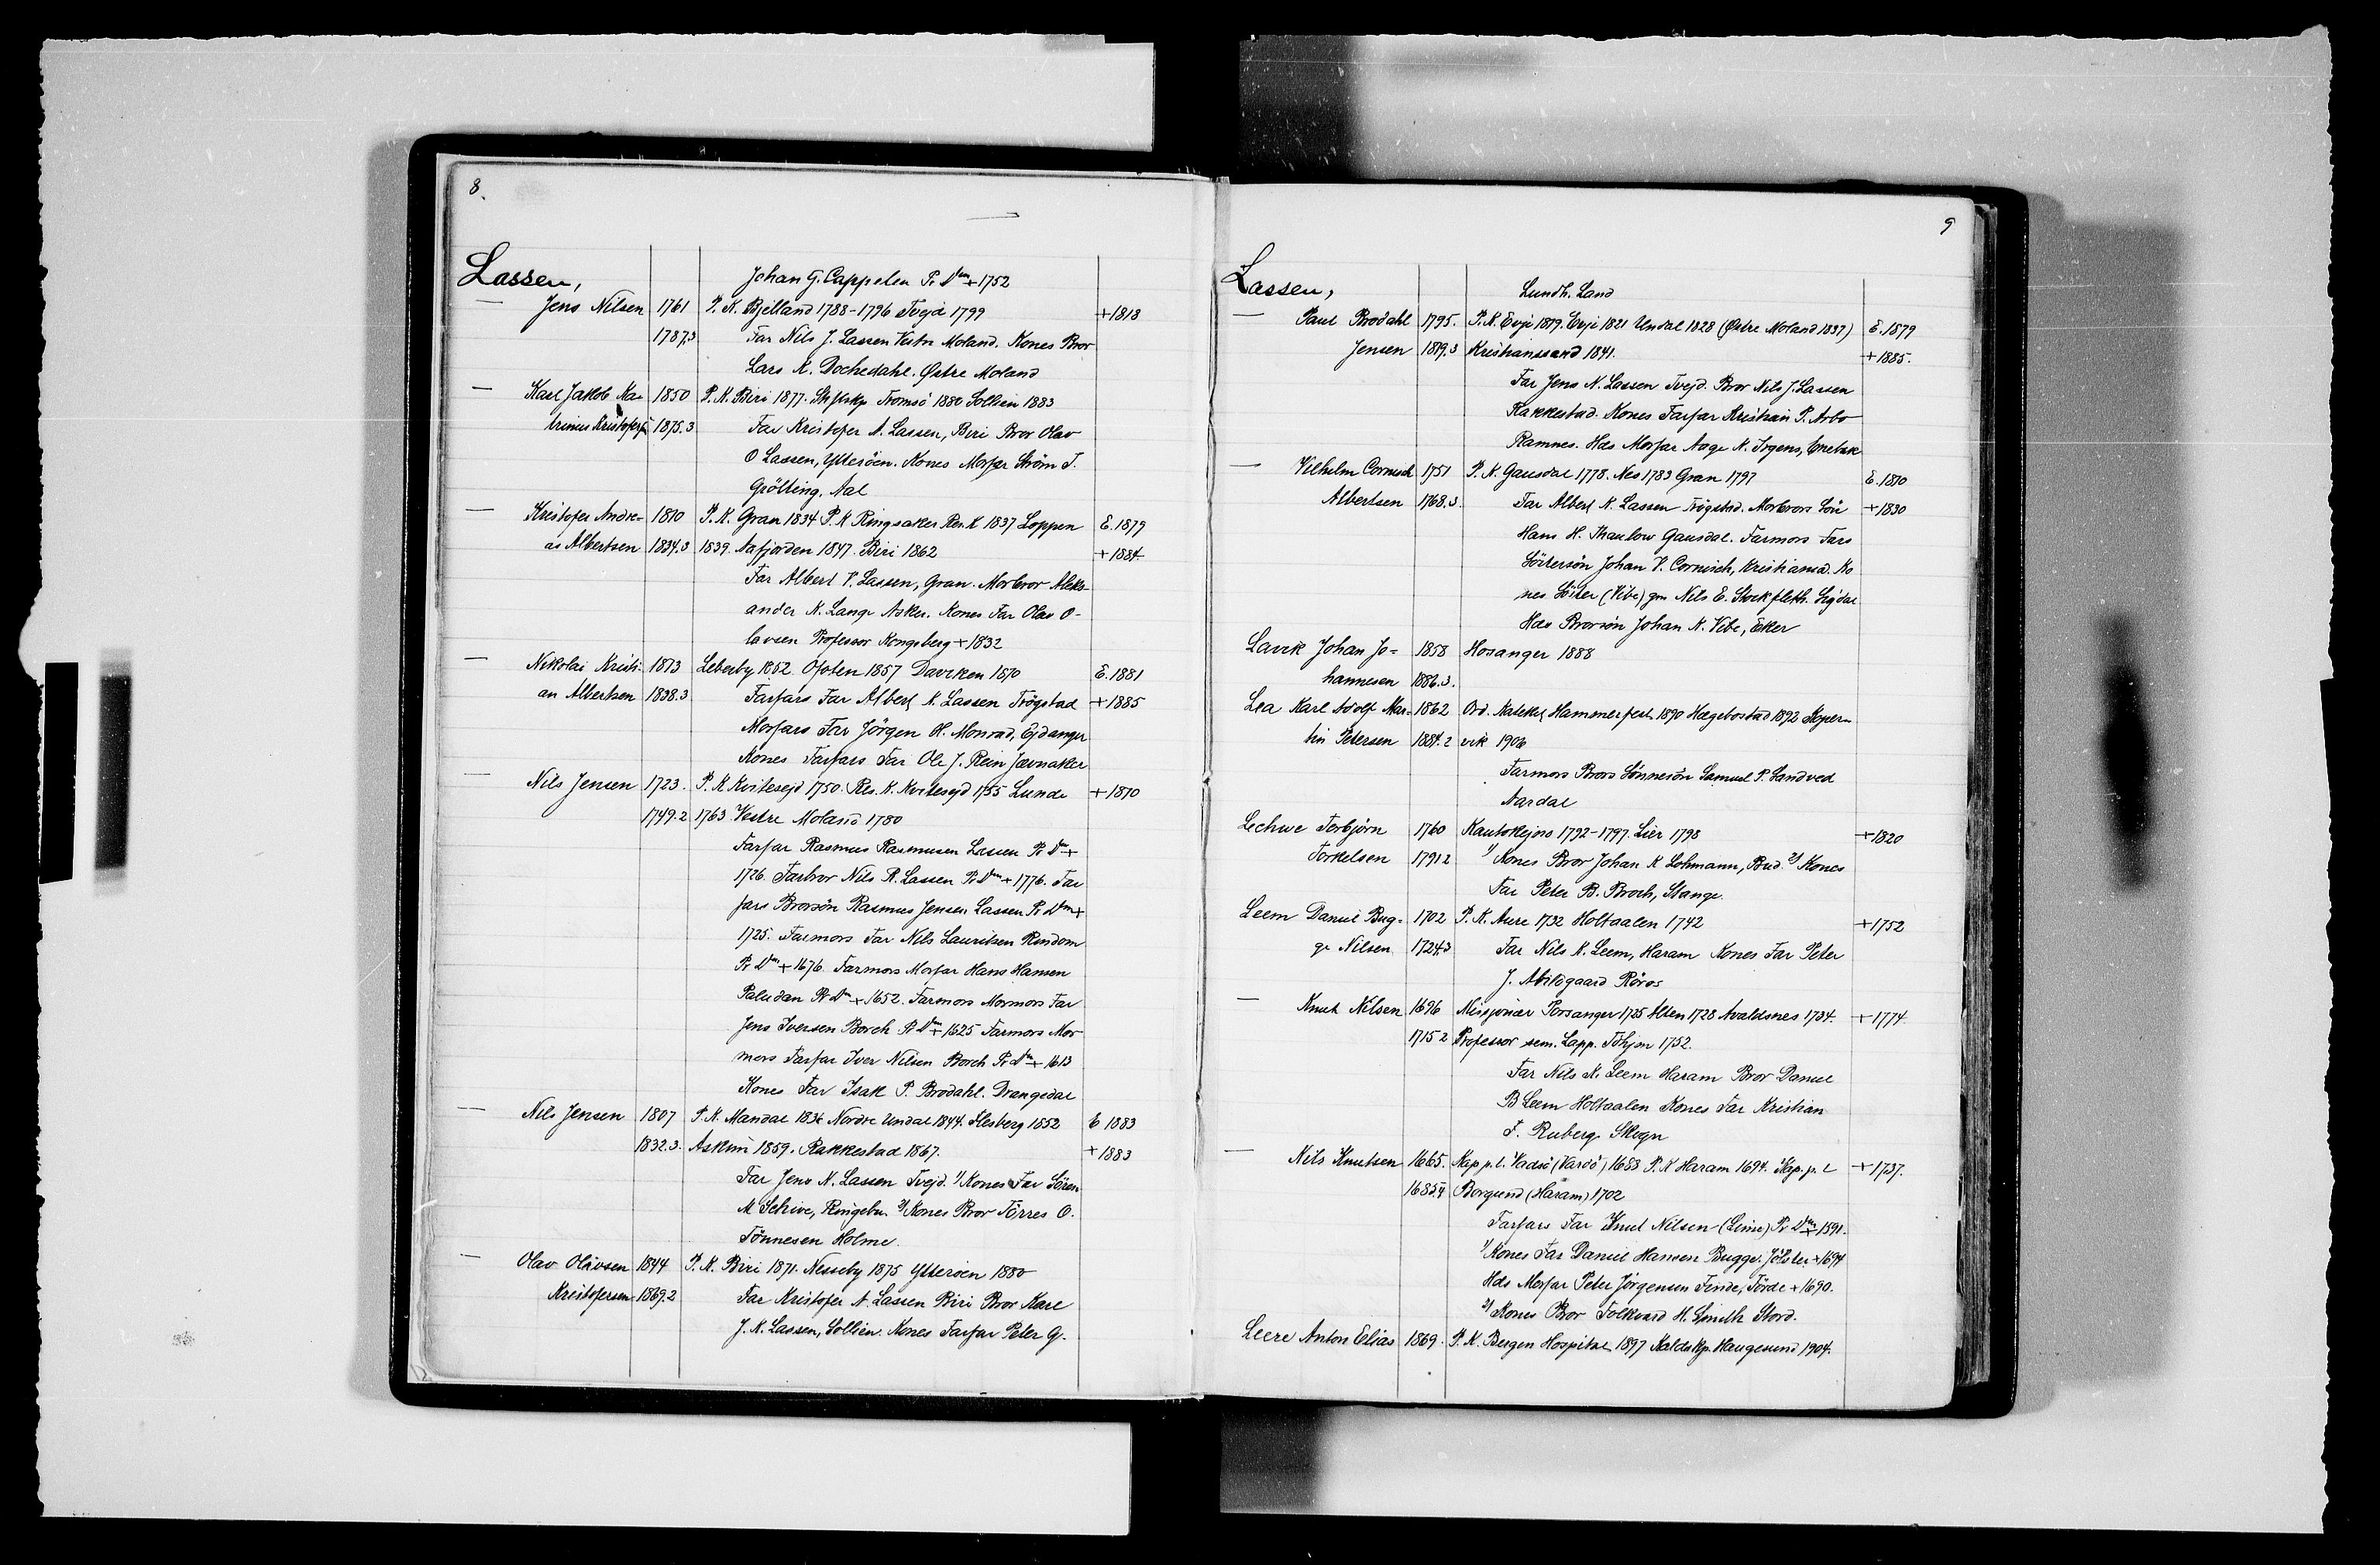 8.
Lassen,
Johan G. Cappelen Pr. Dm + 1752
— Jens Nilsen 1761 P. K. Bjelland 1788-1796 Tvejd 1799 +1818
1787.3 Far Nils J. Lassen Vestre Moland. Kones Bror
Lars K. Dochedahl. Østre Moland
— Karl Jakob Ka- 1850 P. K. Biri 1877. Stiftskp Tromsö 1880 Sollien 1883
trinus Kristofers 1875.3 Far Kristofer A. Lassen, Biri Bror Olav
O Lassen, Ytteröen. Kones Morfar Ström T.
Grölting. Aal
— Kristofer Andre- 1810 P. K. Gran 1834 P. K Ringsaker Res. K. 1837 Loppen E. 1879
as Albertsen 1834.3 1839. Aafjorden 1847. Biri 1862 +1884
Far Albert V. Lassen, Gran. Morbror Aleks-
ander N. Lange Asker. Kones Far Olav O-
lavsen Professor Kongsberg + 1832
— Nikolai Kristi- 1813 Lebesby 1852. Ofoten 1857 Daviken 1870 E. 1881
an Albertsen 1838.3 Farfars Far Albert K. Lassen Trögstad +1885
Morfars Far Jörgen H. Monrad, Ejdanger
Kones Farfars Far Ole J. Rein Jævnaker
— Nils Jensen 1723. P. K Kvitesejd 1750. Res. K. Kvitesejd 1755 Lunde +1810
1749.2 1763 Vestre Moland 1780
Farfar Rasmus Rasmusen Lassen Pr. Dm +
1726. Farbror Nils R. Lassen Pr Dm + 1776. Far
fars Brorsön Rasmus Jensen Lassen Pr Dm +
1725. Farmors Far Nils Lauritsen Rindom
Pr Dm + 1676. Farmors Morfar Hans Hansen
Paludan Pr Dm + 1652. Farmors Mormors Far
Jens Iversen Borch Pr Dm + 1625 Farmors Mor-
mors Farfar Iver Nilsen Borch Pr Dm + 1613
Kones Far Isak P. Brodahl. Drangedal
— Nils Jensen 1807 P. K. Mandal 1834 Nordre Undal 1844. Flesberg 1852 E 1883
1832.3. Askim 1859. Rakkestad 1867. +1883
Far Jens N. Lassen Tvejd. 1) Kones Far Sören
M Schive, Ringebu. 2) Kones Bror Törres O.
Tönnesen Holme.
— Olav Olavsen 1844 P. K. Biri 1871. Nesseby 1875 Ytteröen 1880
Kristofersen 1869.2 Far Kristofer A. Lassen Biri Bror Karl
J. K. Lassen, Sollien. Kones Farfar Peter G.
9
Lassen,
Lundh. Land
— Paul Brodahl 1795. P. K. Evje 1819. Evje 1821 Undal 1828 (Østre Moland 1837) E. 1879
Jensen 1819.3 Kristianssand 1841. +1885.
Far Jens N. Lassen Tvejd. Bror Nils J. Lassen
Rakkestad. Kones Farfar Kristian P. Arbo
Ramnes. Hds Morfar Aage N. Irgens, Enebak
— Vilhelm Cornisch 1751 P. K. Gausdal 1778. Nes 1783 Gran 1797 E. 1810
Albertsen 1768.3. Far Albert K. Lassen Trögstad. Morbrors Sön +1830
Hans H. Thaulow Gausdal. Farmors Fars
Söstersön Johan V. Cornisch, Kristiania. Ko
nes Söster (Vibe) gm Nils E. Stockfleth. Sigdal
Hds Brorsön Johan N. Vibe, Eker
Lavik Johan Jo- 1858 Hosanger 1888
hannesen 1882.3.
Lea Karl Adolf Mar- 1862 Ord. Kateket Hammerfest 1890 Hægebostad 1892 Koper-
tin Petersen 1884.2 vik 1906
Farmors Brors Sönnesön Samuel P. Sandved
Aardal
Lechwe Torbjörn 1760 Kautokejno 1792-1797. Lier 1798 +1820
Torkelsen 1791.2 1) Kones Bror Johan K Lohmann, Bud. 2) Kones
Far Peter B. Broch, Stange.
Leem Daniel Bug- 1702 P. K. Aure 1732 Holtaalen 1742 +1752
ge Nilsen 1724.3 Far Nils K. Leem, Haram Kones Far Peter
J. Abildgaard Röros
— Knud Nilsen 1696 Misjonær Porsanger 1725 Alten 1728 Avaldsnes 1734. +1774.
1715 2 Professor sem. Lapp. Tòhjem 1752.
Far Nils K. Leem Haram Bror Daniel
B Leem Holtaalen Kones Far Kristian
F. Ruberg. Skogn
— Nils Knutsen 1665. Kap p. l. Vadsö (Vardö) 1688 P. K Haram 1694. Kap. p. l +1737.
1685.4 Borgund (Haram) 1702
Farfars Far Knut Nilsen (Leine) Pr Dm + 1591.
1) Kones Far Daniel Hansen Bugge. Jölster +1694
Hds Morfar Peter Jörgensen Finde, Förde +1690.
2) Kones Bror Folkvard H. Smith Stord.
Leere Anton Elias 1869. P. K. Bergen Hospital 1897 Kaldskp. Haugesund 1904.